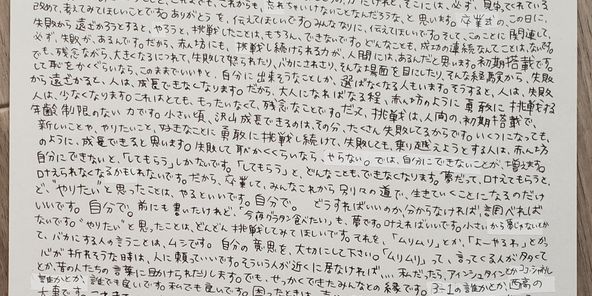 改めて、考えてみてほしいことです。ありがとうを、伝えてほしいです。みんなな りに、伝えてほしいです。そして、このことに関連して、
必ず、失敗が、あるんです。だから、赤ん坊にも、挑戦し続けられる力が、人間には、あるんだと思います。初期搭載です。
でも、残念ながら、大きくなるにつれて、失敗して怒られたり、バカにされたり、そんな場面を目にしたり、そんな経験から、失敗
して恥をかくくらいなら、このままでいいやと、自分に出来そうなことしか、選ばなくなる人もいます。そうすると、人は、失敗
から遠ざかるし、人は、成長できなくなります。だから、大人になればなる程、赤ん坊のように勇敢に挑戦をする
人は、少なくなります。これはとても、もったいなくて、残念なことです。だって、挑戦は、人間の、初期搭載で、
年齢制限のない力です。小さい頃、沢山成長できるのは、その分、たくさん失敗してるからです。いくつになっても、
新しいことや、やりたいこと、好きなことに勇敢に挑戦し続けて、失敗しても、乗り越えようとする人は、赤ん坊
のように、成長できると思います。失敗して恥かくくらいなら、やらない。では、自分にできないことが、増えます。
自分にできないと、「してもらう」しかないです。「してもらう」と、どんなことも、できなくなります。夢だって、叶えてもらうと、
叶えられなくなるかもしれないです。だから、卒業して、みんなこれから別々の道で、生きていくことになるのだけ
ど、"やりたい"と思ったことは、やるといいです。自分で。どうすればいいのか、分からなければ、調べれば
いいです。自分で。前にも書いたけれど、「今夜グラタン食べたい」も、夢です。叶えればいいです。小さい から夢じゃないとか
ないです。"やりたい"と思ったことは、どんどん挑戦してみてほしいです。それを、「ムリムリ」とか、「よーやるわ」とか
って、バカにする人の言うことは、ムシです。自分の意思を、大切にして下さい。「ムリムリ」って、言ってくる人が多くて
心が折れそうな時は、人に頼っていいです。そういう人が近くに居なければ…、私だったら、アインシュタインとか
とか、昔の人たちの言葉に助けられたりします。でも、せっかくできたみんなとの縁です。3-1の誰かとか、西高の
誰かとか、誰でも良いです。私でも良いです。困ったときは、